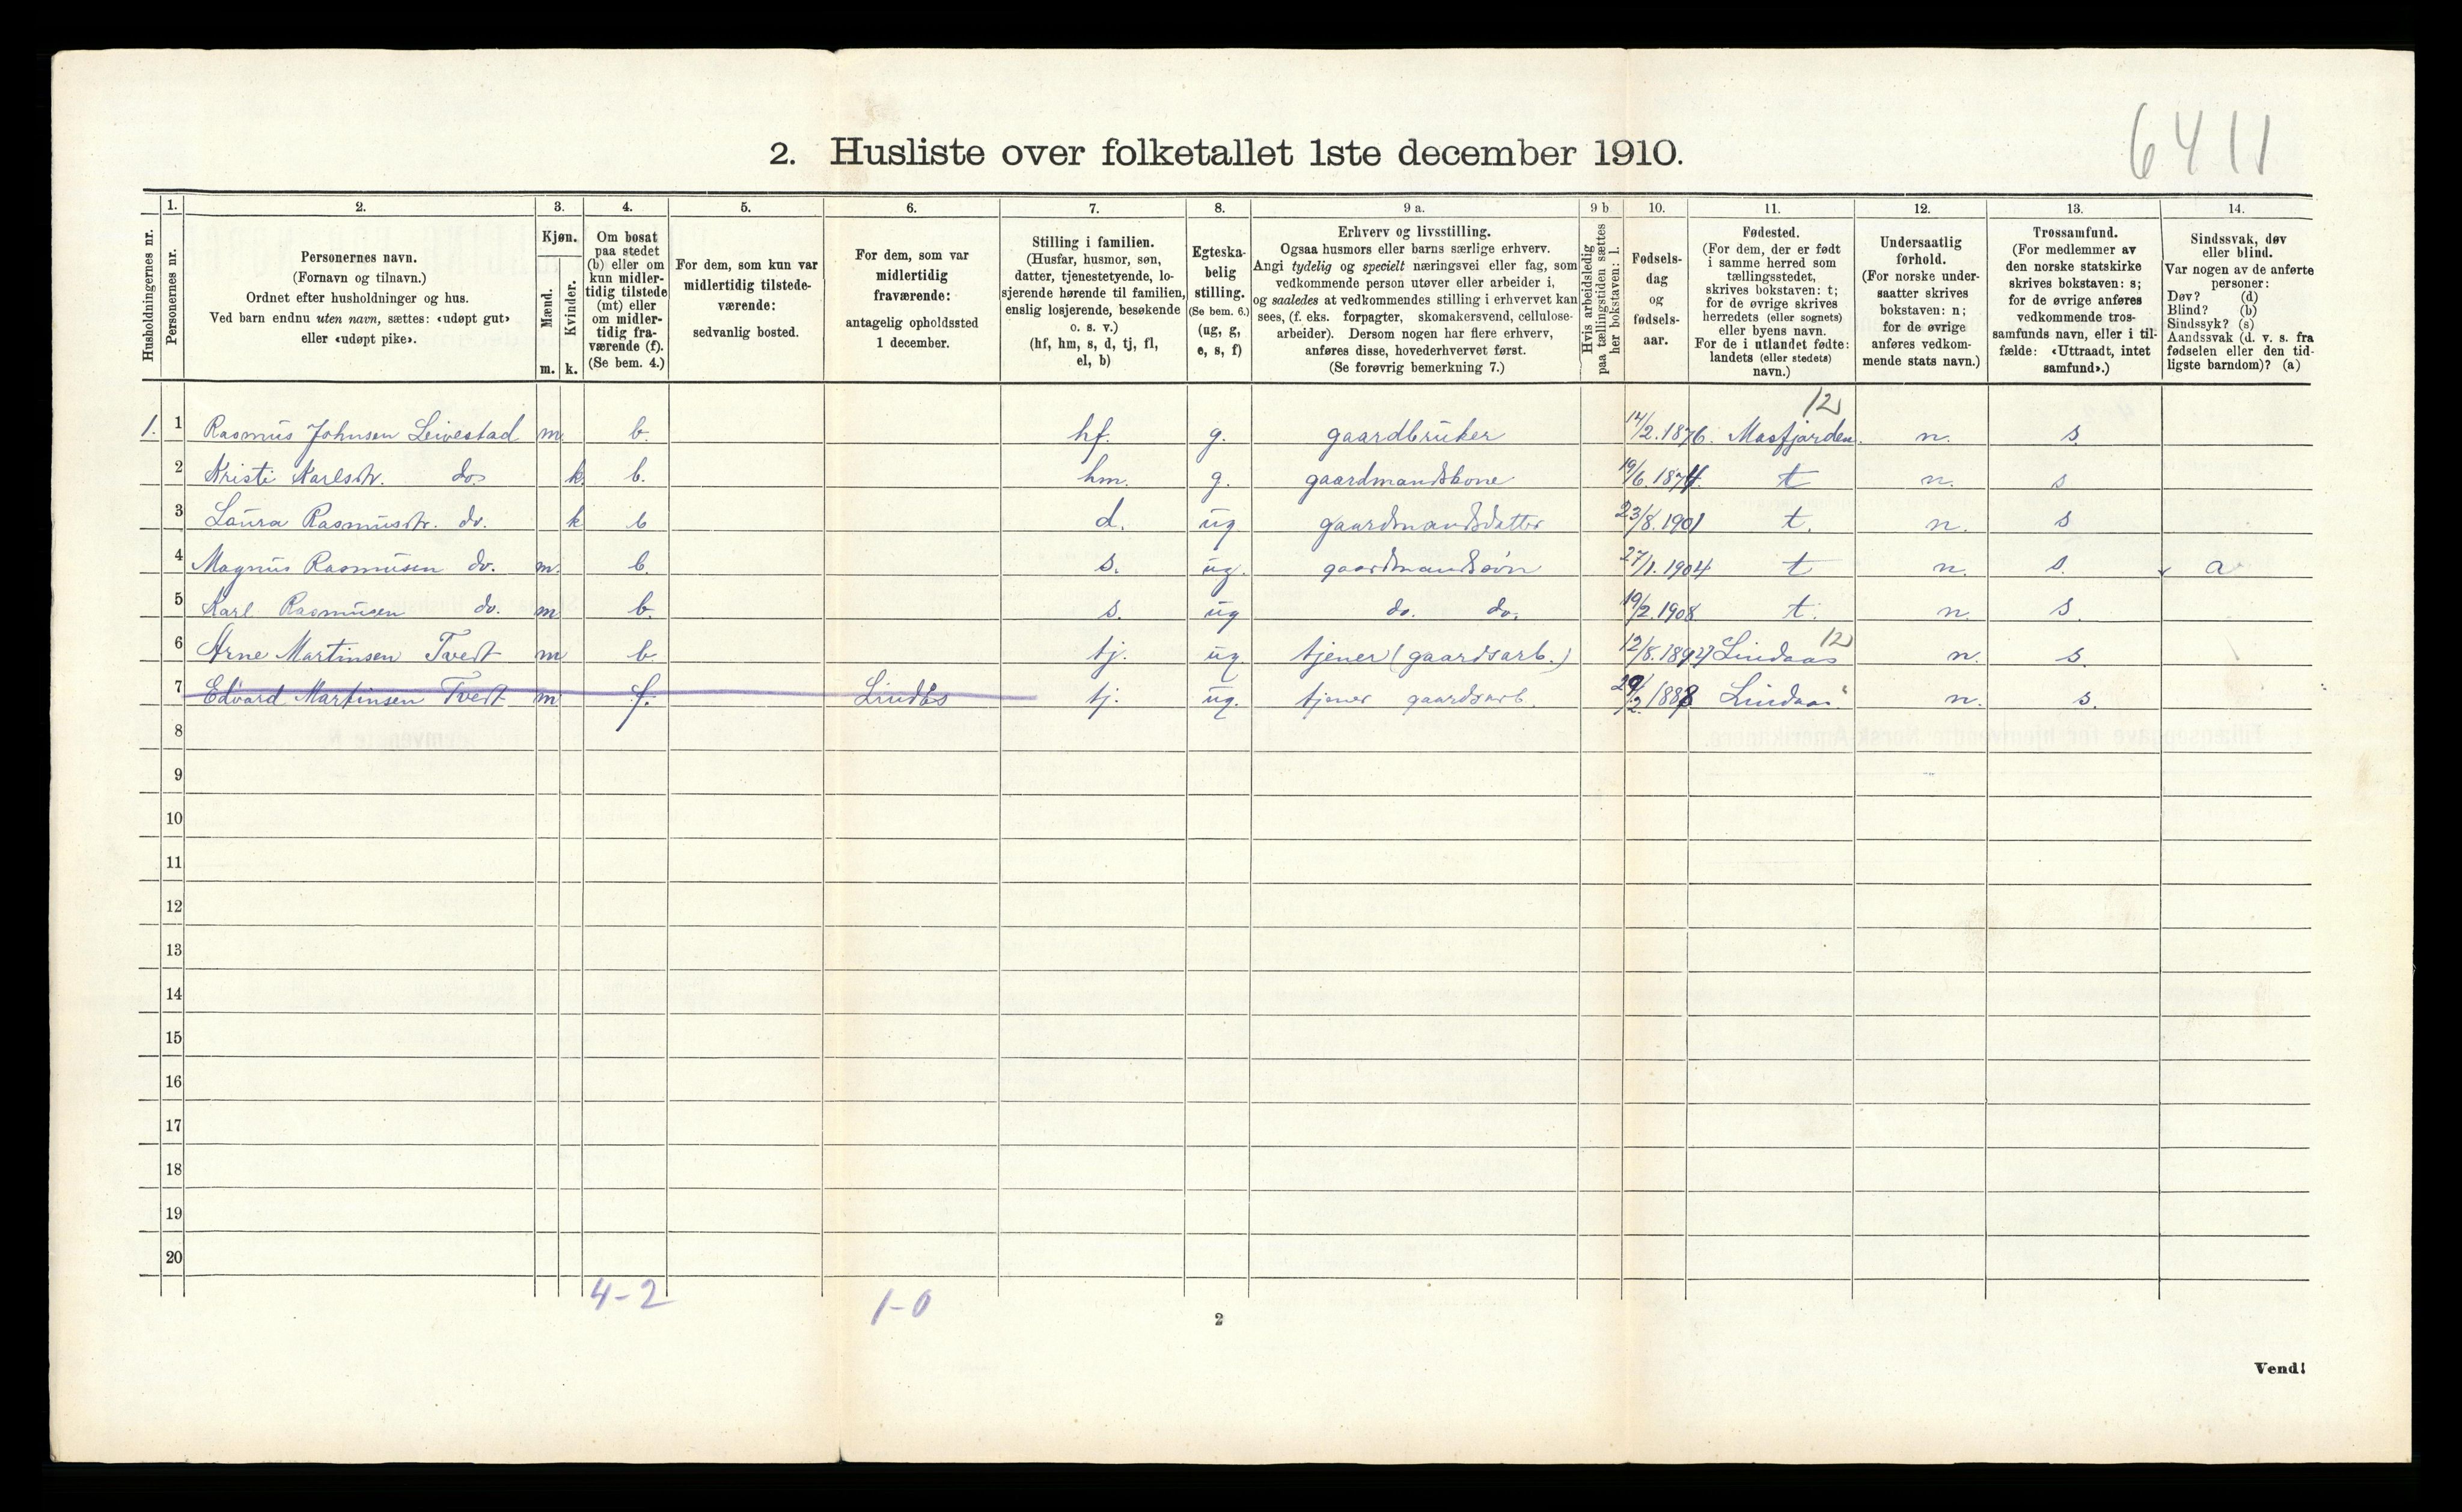 6411
2. Husliste over folketallet 1ste december 1910.
1. 2. 3. 4. 5. 6. 7. 8. 9 a. 9 b 10. 11. 12. 13. 14.
Husholdningernes nr.
Personernes nr.
Personernes navn.
(Fornavn og tilnavn.)
Ordnet efter husholdninger og hus.
Ved barn endnu uten navn, sættes: «udøpt gut»
eller «udøpt pike».
Kjøn.
Mænd.
Kvinder.
m. k.
Om bosat
paa stedet
(b) eller om
kun midler-
tidig tilstede
(mt) eller
om midler-
tidig fra-
værende (f).
(Se bem. 4.)
For dem, som kun var
midlertidig tilstede-
værende:
sedvanlig bosted.
For dem, som var
midlertidig
fraværende:
antagelig opholdssted
1 december.
Stilling i familien.
(Husfar, husmor, søn,
datter, tjenestetyende, lo-
sjerende hørende til familien,
enslig losjerende, besøkende
o. s. v.)
(hf, hm, s, d, tj, fl,
el, b)
Egteska-
belig
stilling.
(Se bem. 6.)
(ug, g,
e, s, f)
Erhverv og livsstilling.
Ogsaa husmors eller barns særlige erhverv.
Angi tydelig og specielt næringsvei eller fag, som
vedkommende person utøver eller arbeider i,
og saaledes at vedkommendes stilling i erhvervet kan
sees, (f. eks. forpagter, skomakersvend, cellulose-
arbeider). Dersom nogen har flere erhverv,
anføres disse, hovederhvervet først.
(Se forøvrig bemerkning 7.)
Hvis arbeidsledig
paa tællingstiden sættes
her bokstaven: l.
Fødsels-
dag
og
fødsels-
aar.
Fødested.
(For dem, der er født
i samme herred som
tællingsstedet,
skrives bokstaven: t;
for de øvrige skrives
herredets (eller sognets)
eller byens navn.
For de i utlandet fødte:
landets (eller stedets)
navn.)
Undersaatlig
forhold.
(For norske under-
saatter skrives
bokstaven: n;
for de øvrige
anføres vedkom-
mende stats navn.)
Trossamfund.
(For medlemmer av
den norske statskirke
skrives bokstaven: s;
for de øvrige anføres
vedkommende tros-
samfunds navn, eller i til-
fælde: «Uttraadt, intet
samfund».)
Sindssvak, døv
eller blind.
Var nogen av de anførte
personer:
Døv? (d)
Blind? (b)
Sindssyk? (s)
Aandssvak (d. v. s. fra
fødselen eller den tid-
ligste barndom)? (a)
12
1. 1 Rasmus Johnsen Leivestad m b. hf. g. gaardbruker 14/2.1876. Masfjorden. n. s.
2 Kristi Karlsdtr. do k. b. hm. g. gaardmandskone 19/6.1874. t n. s
3 Laura Rasmusdtr. do. k b d. ug gaardmandsdatter 23/8.1901 t. n. s
4 Magnus Rasmusen do. m. b. s. ug. gaardmandssøn 27/1.1904 t n. s. a
5 Karl Rasmusen do. m b. s. ug do. do. 19/2.1908 t. n. s.
12
6 Arne Martinsen Tveit m b. tj. ug. tjener (gaardsarb.) Lindaas n. s.
7 Edvard Martinsen Tveit m f. Lindås tj. ug. tjener gaardsarb. Lindaas n. s.
8
9
10
11
12
13
14
15
16
17
18
19
20
4-2 1-0
2
Vend!